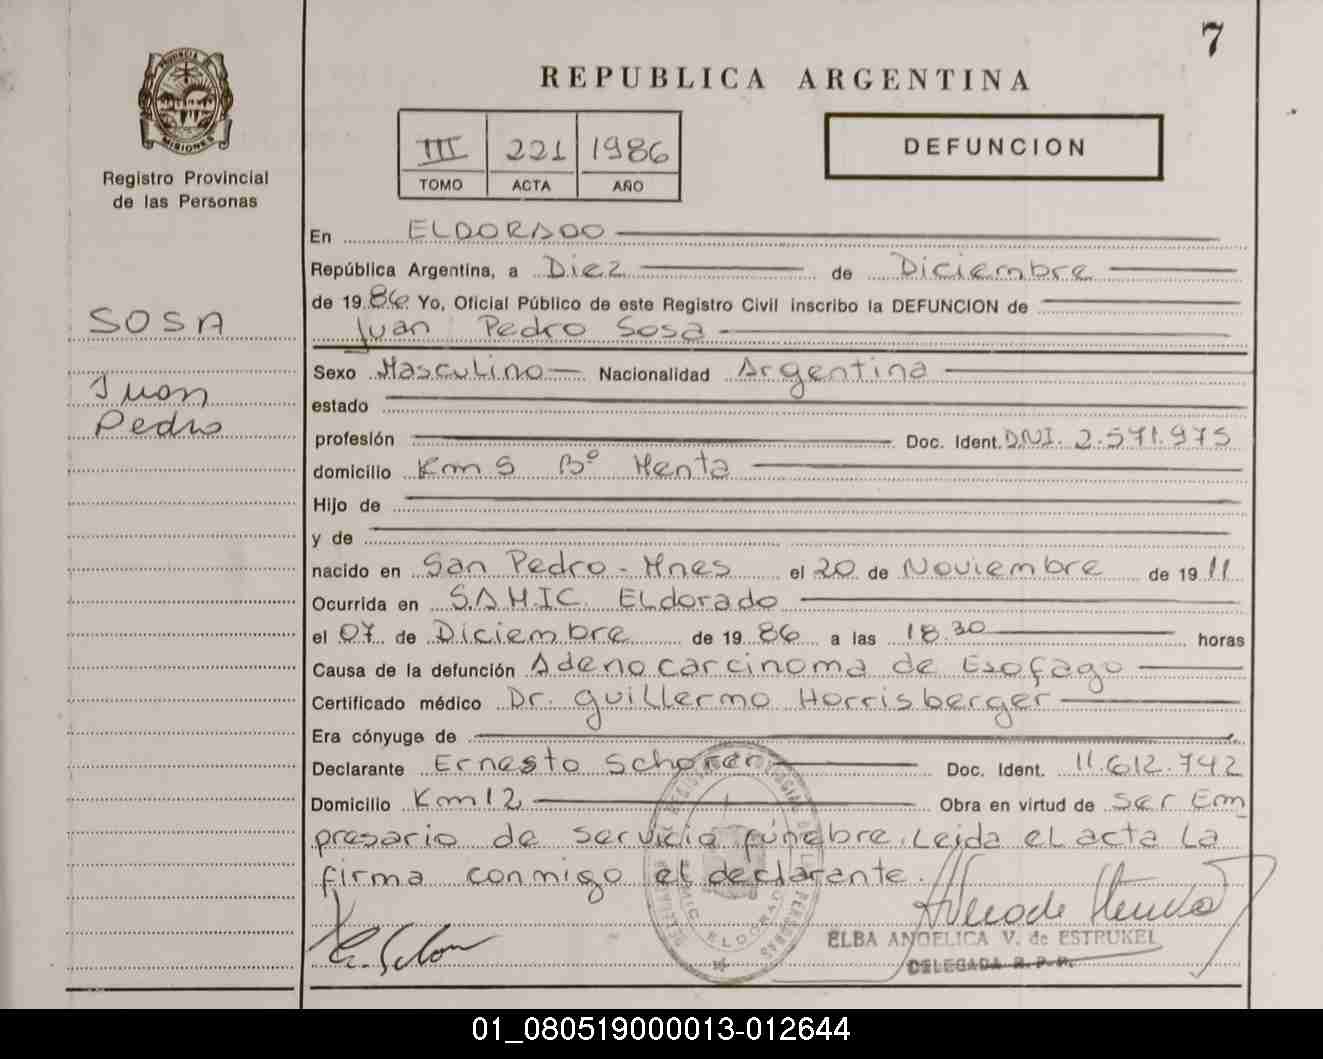 7
REPUBLICA ARGENTINA
PROVINCIA DE MISIONES
Registro Provincial
de las Personas
III 221 1986
TOMO ACTA AÑO
DEFUNCION
SOSA
Juan
Pedro
En ELDORADO
República Argentina, a Diez de Diciembre
de 1986 Yo, Oficial Público de este Registro Civil inscribo la DEFUNCION de
Juan Pedro Sosa
Sexo Masculino Nacionalidad Argentina
estado
profesión Doc. Ident. DNI. 2.571.975
domicilio Km 5 Bº Menta
Hijo de
y de
nacido en San Pedro - Mnes el 20 de Noviembre de 1911
Ocurrida en S.A.M.I.C. Eldorado
el 07 de Diciembre de 1986 a las 18.30 horas
Causa de la defunción Adenocarcinoma de Esofago
Certificado médico Dr. Guillermo Horrisberger
Era cónyuge de
Declarante Ernesto Schorer Doc. Ident. 11.612.742
Domicilio Km 12 Obra en virtud de ser Em
presario de servicio fúnebre. Leida el acta la
firma conmigo el declarante.
ELBA ANGELICA V. de ESTRUKEL
DELEGADA R.P.P.
01_080519000013-012644